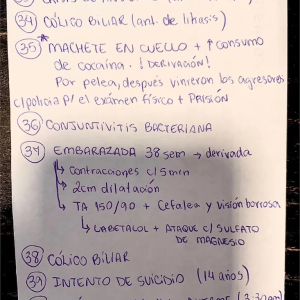 34 CÓLICO BILIAR (ant. de litiasis)
35 * MACHETE EN CUELLO + ↑ consumo
de cocaína. ¡DERIVACIÓN!
Por pelea, después vinieron los agresores
c/policia p/ el exámen físico + PRISIÓN
36 CONJUNTIVITIS BACTERIANA
37 EMBARAZADA 38 sem → derivada
↳ contracciones c/5min
↳ 2cm dilatación
↳ TA 150/90 + Cefalea y visión borrosa
↳ LABETALOL + ATAQUE C/ SULFATO
DE MAGNESIO
38 CÓLICO BILIAR
39 INTENTO DE SUICIDIO (14 años)